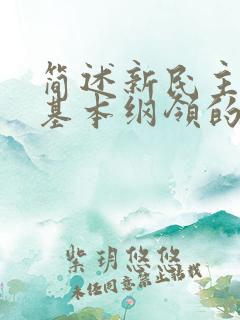 简述新民主
基本纲领的
紫玥悠悠
未经同意禁止转载